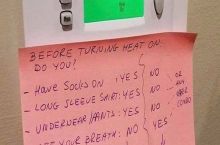 BEFORE TURNING HEAT ON:
DO YOU?
- HAVE SOCKS ON: YES NO
- LONG SLEEVE SHIRT: YES NO OR ANY
- UNDERWEAR/PANTS: YES NO COMBO
YOUR BREATH: NO YES